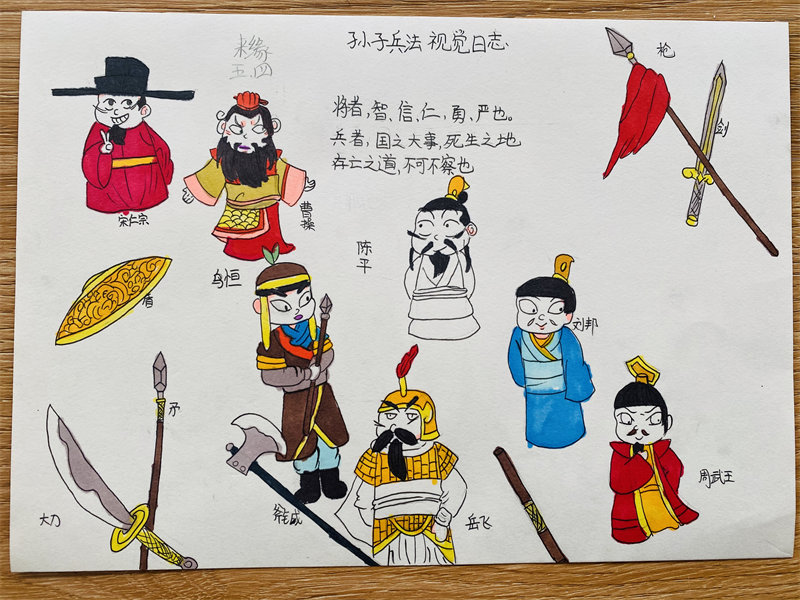 孙子兵法 视觉日志
未缘
五.四
将者,智、信、仁、勇、严也。
兵者,国之大事,死生之地
存亡之道,不可不察也
枪
剑
宋仁宗
曹操
陈平
乌恒
盾
刘邦
矛
周武王
大刀
岳飞